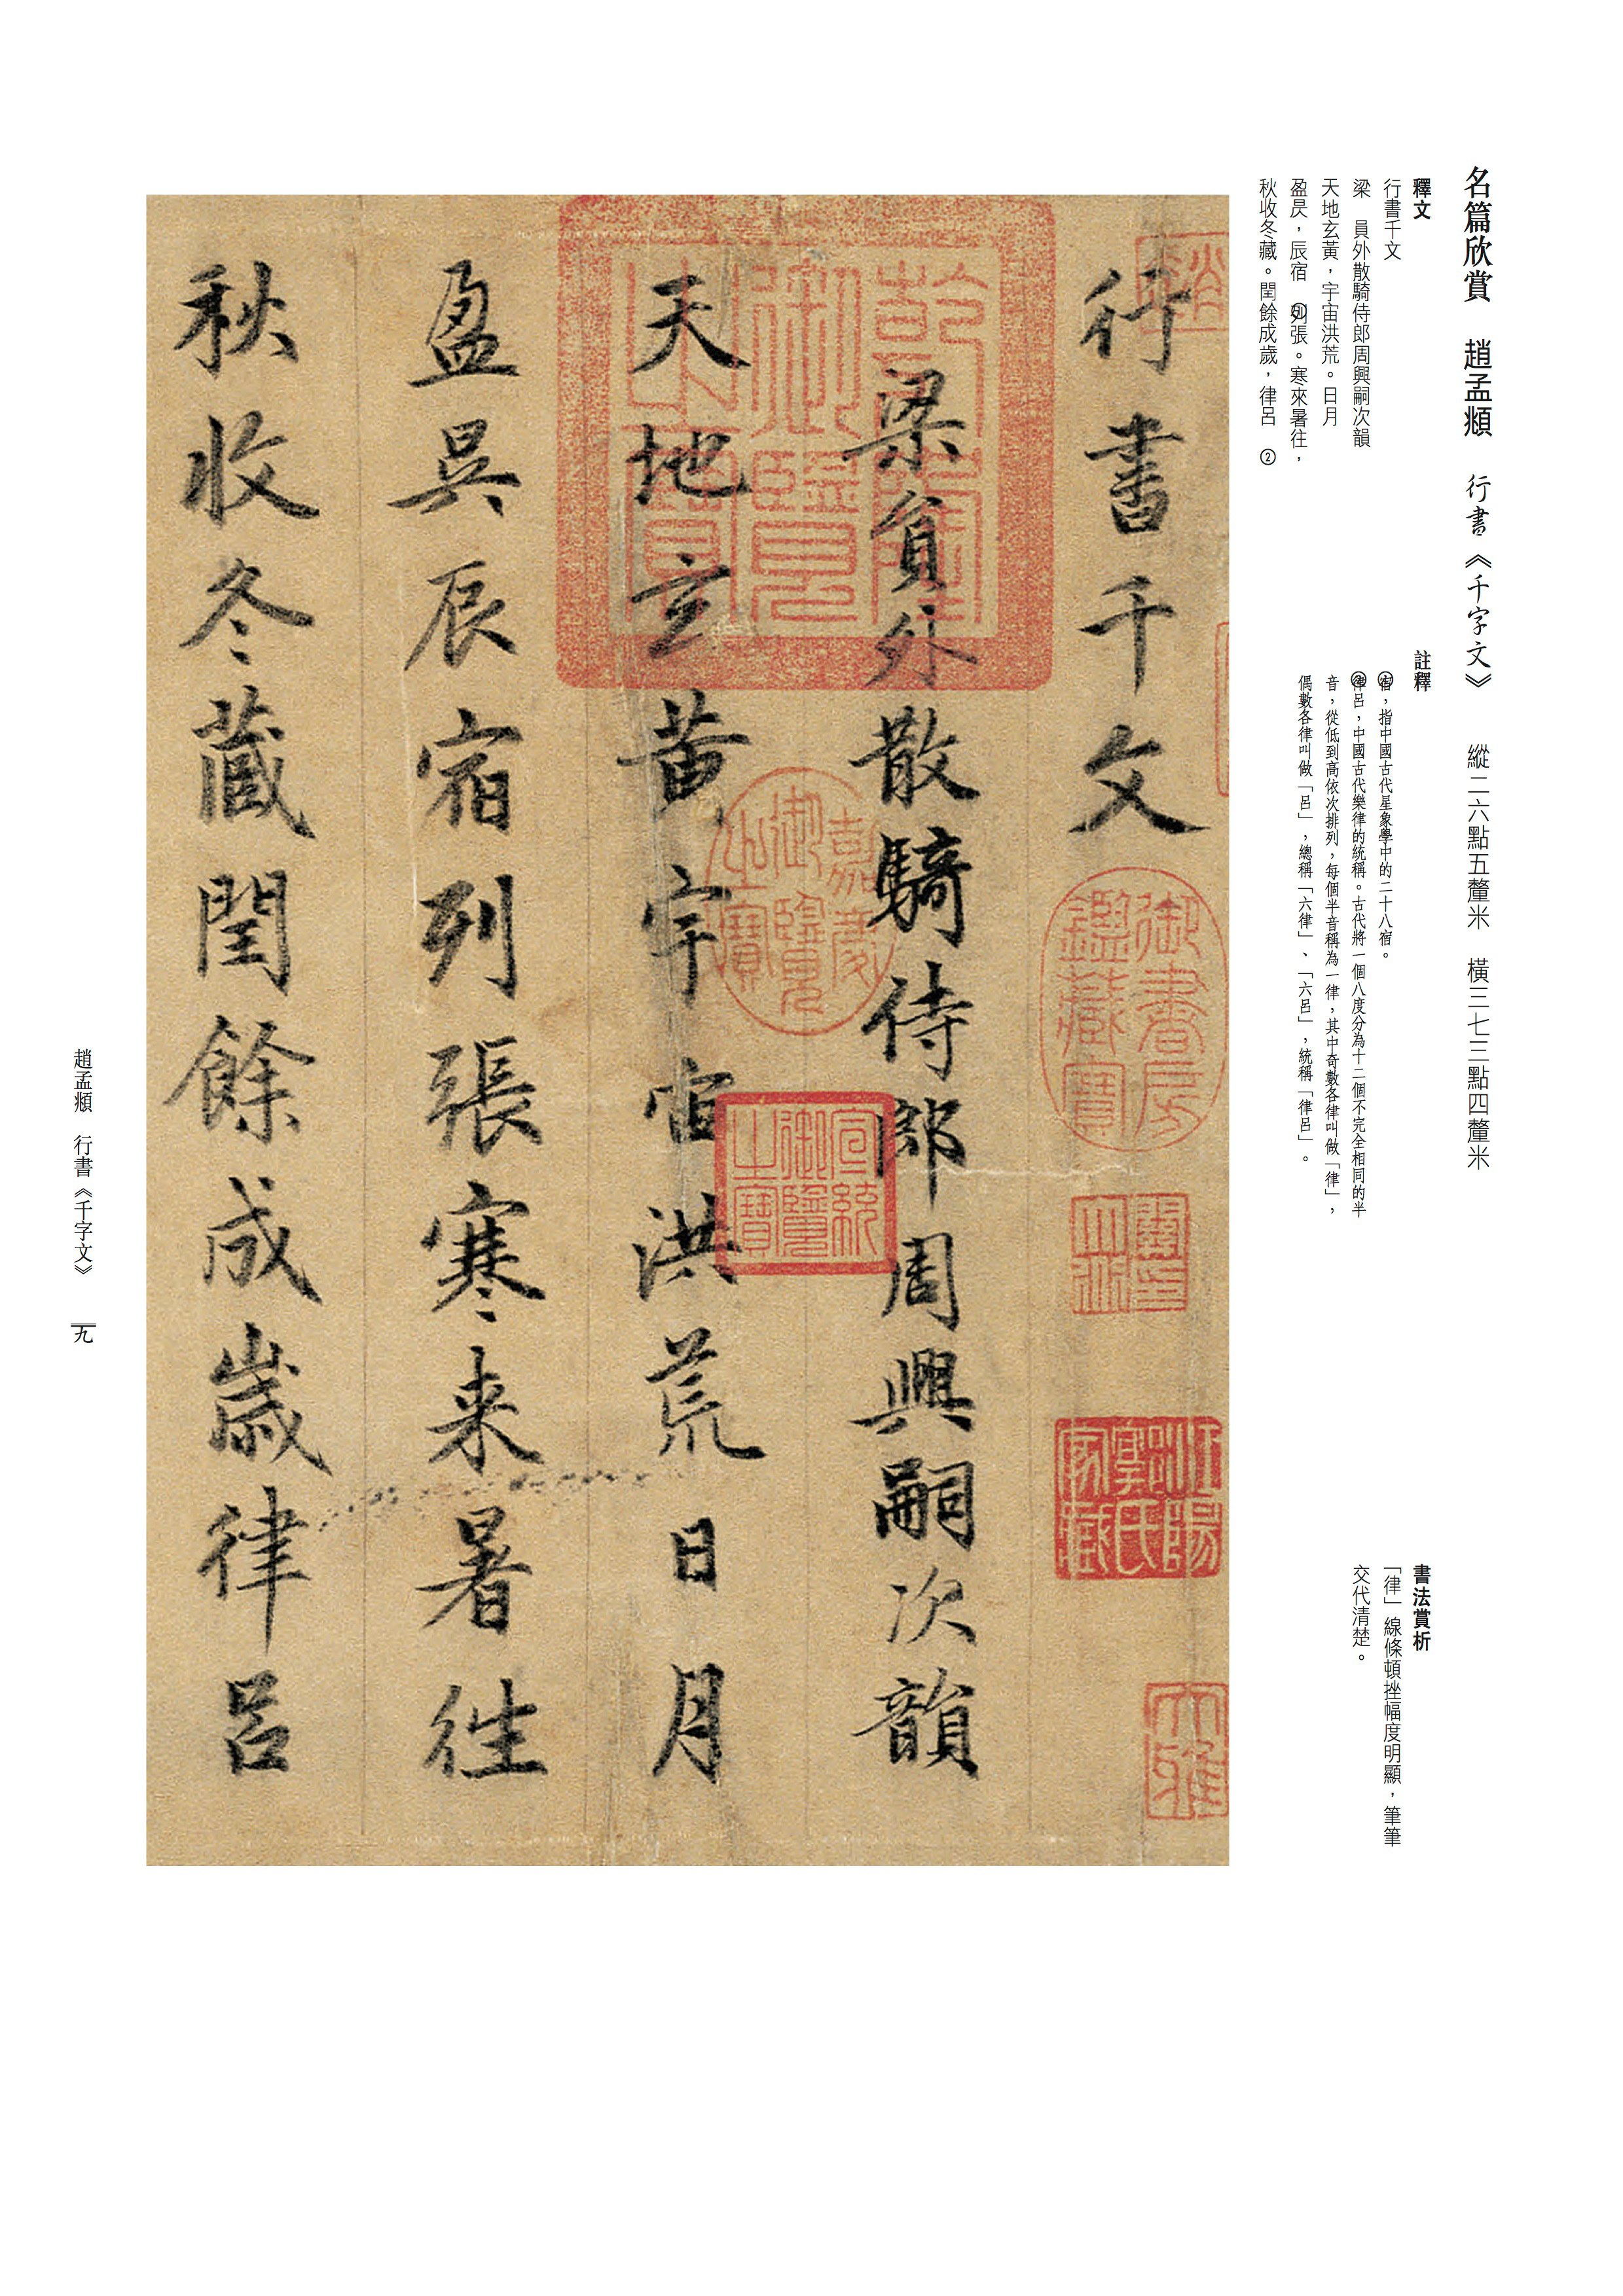 名篇欣賞　趙孟頫　行書《千字文》　縱二六點五釐米　橫三七三點四釐米
釋文
行書千文
梁　員外散騎侍郎周興嗣次韻
天地玄黃，宇宙洪荒。日月
盈昃，辰宿①列張。寒來暑往，
秋收冬藏。閏餘成歲，律呂②
註釋
①宿，指中國古代星象學中的二十八宿。
②律呂，中國古代樂律的統稱。古代將一個八度分為十二個不完全相同的半
音，從低到高依次排列，每個半音稱為一律，其中奇數各律叫做「律」，
偶數各律叫做「呂」，總稱「六律」、「六呂」，統稱「律呂」。
書法賞析
「律」線條頓挫幅度明顯，筆筆
交代清楚。
行書千文
梁員外散騎侍郎周興嗣次韻
天地玄黃宇宙洪荒日月
盈昃辰宿列張寒来暑往
秋收冬藏閏餘成歲律呂
乾隆御覽之寶
嘉慶御覽之寶
宣統御覽之寶
御書房鑑藏寶
趙孟頫　行書《千字文》
九